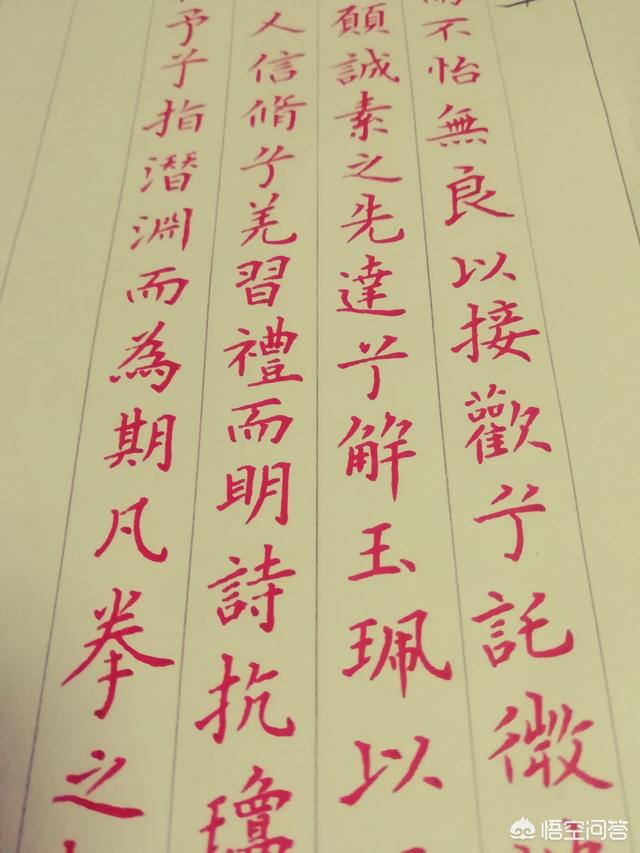 而不怡無良以接歡兮託微
願誠素之先達兮解玉珮以
人信脩兮羌習禮而明詩抗瓊
予兮指潛淵而為期凡拳之
悟空问答